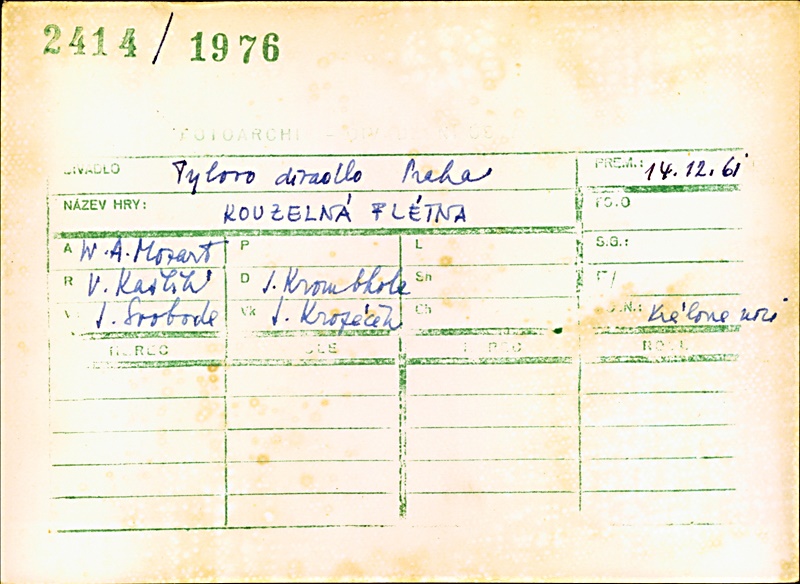 2414/1976
FOTOARCHI
DIVADLO Tylovo divadlo Praha PREM.: 14.12.61
NÁZEV HRY: KOUZELNÁ FLÉTNA
A W.A. Mozart P L S.G.:
R V. Kašlík D J. Krombholc Sh
V J. Svoboda Vk J. Kropáček Ch Králova noci
HEREC ROLE HEREC ROLE